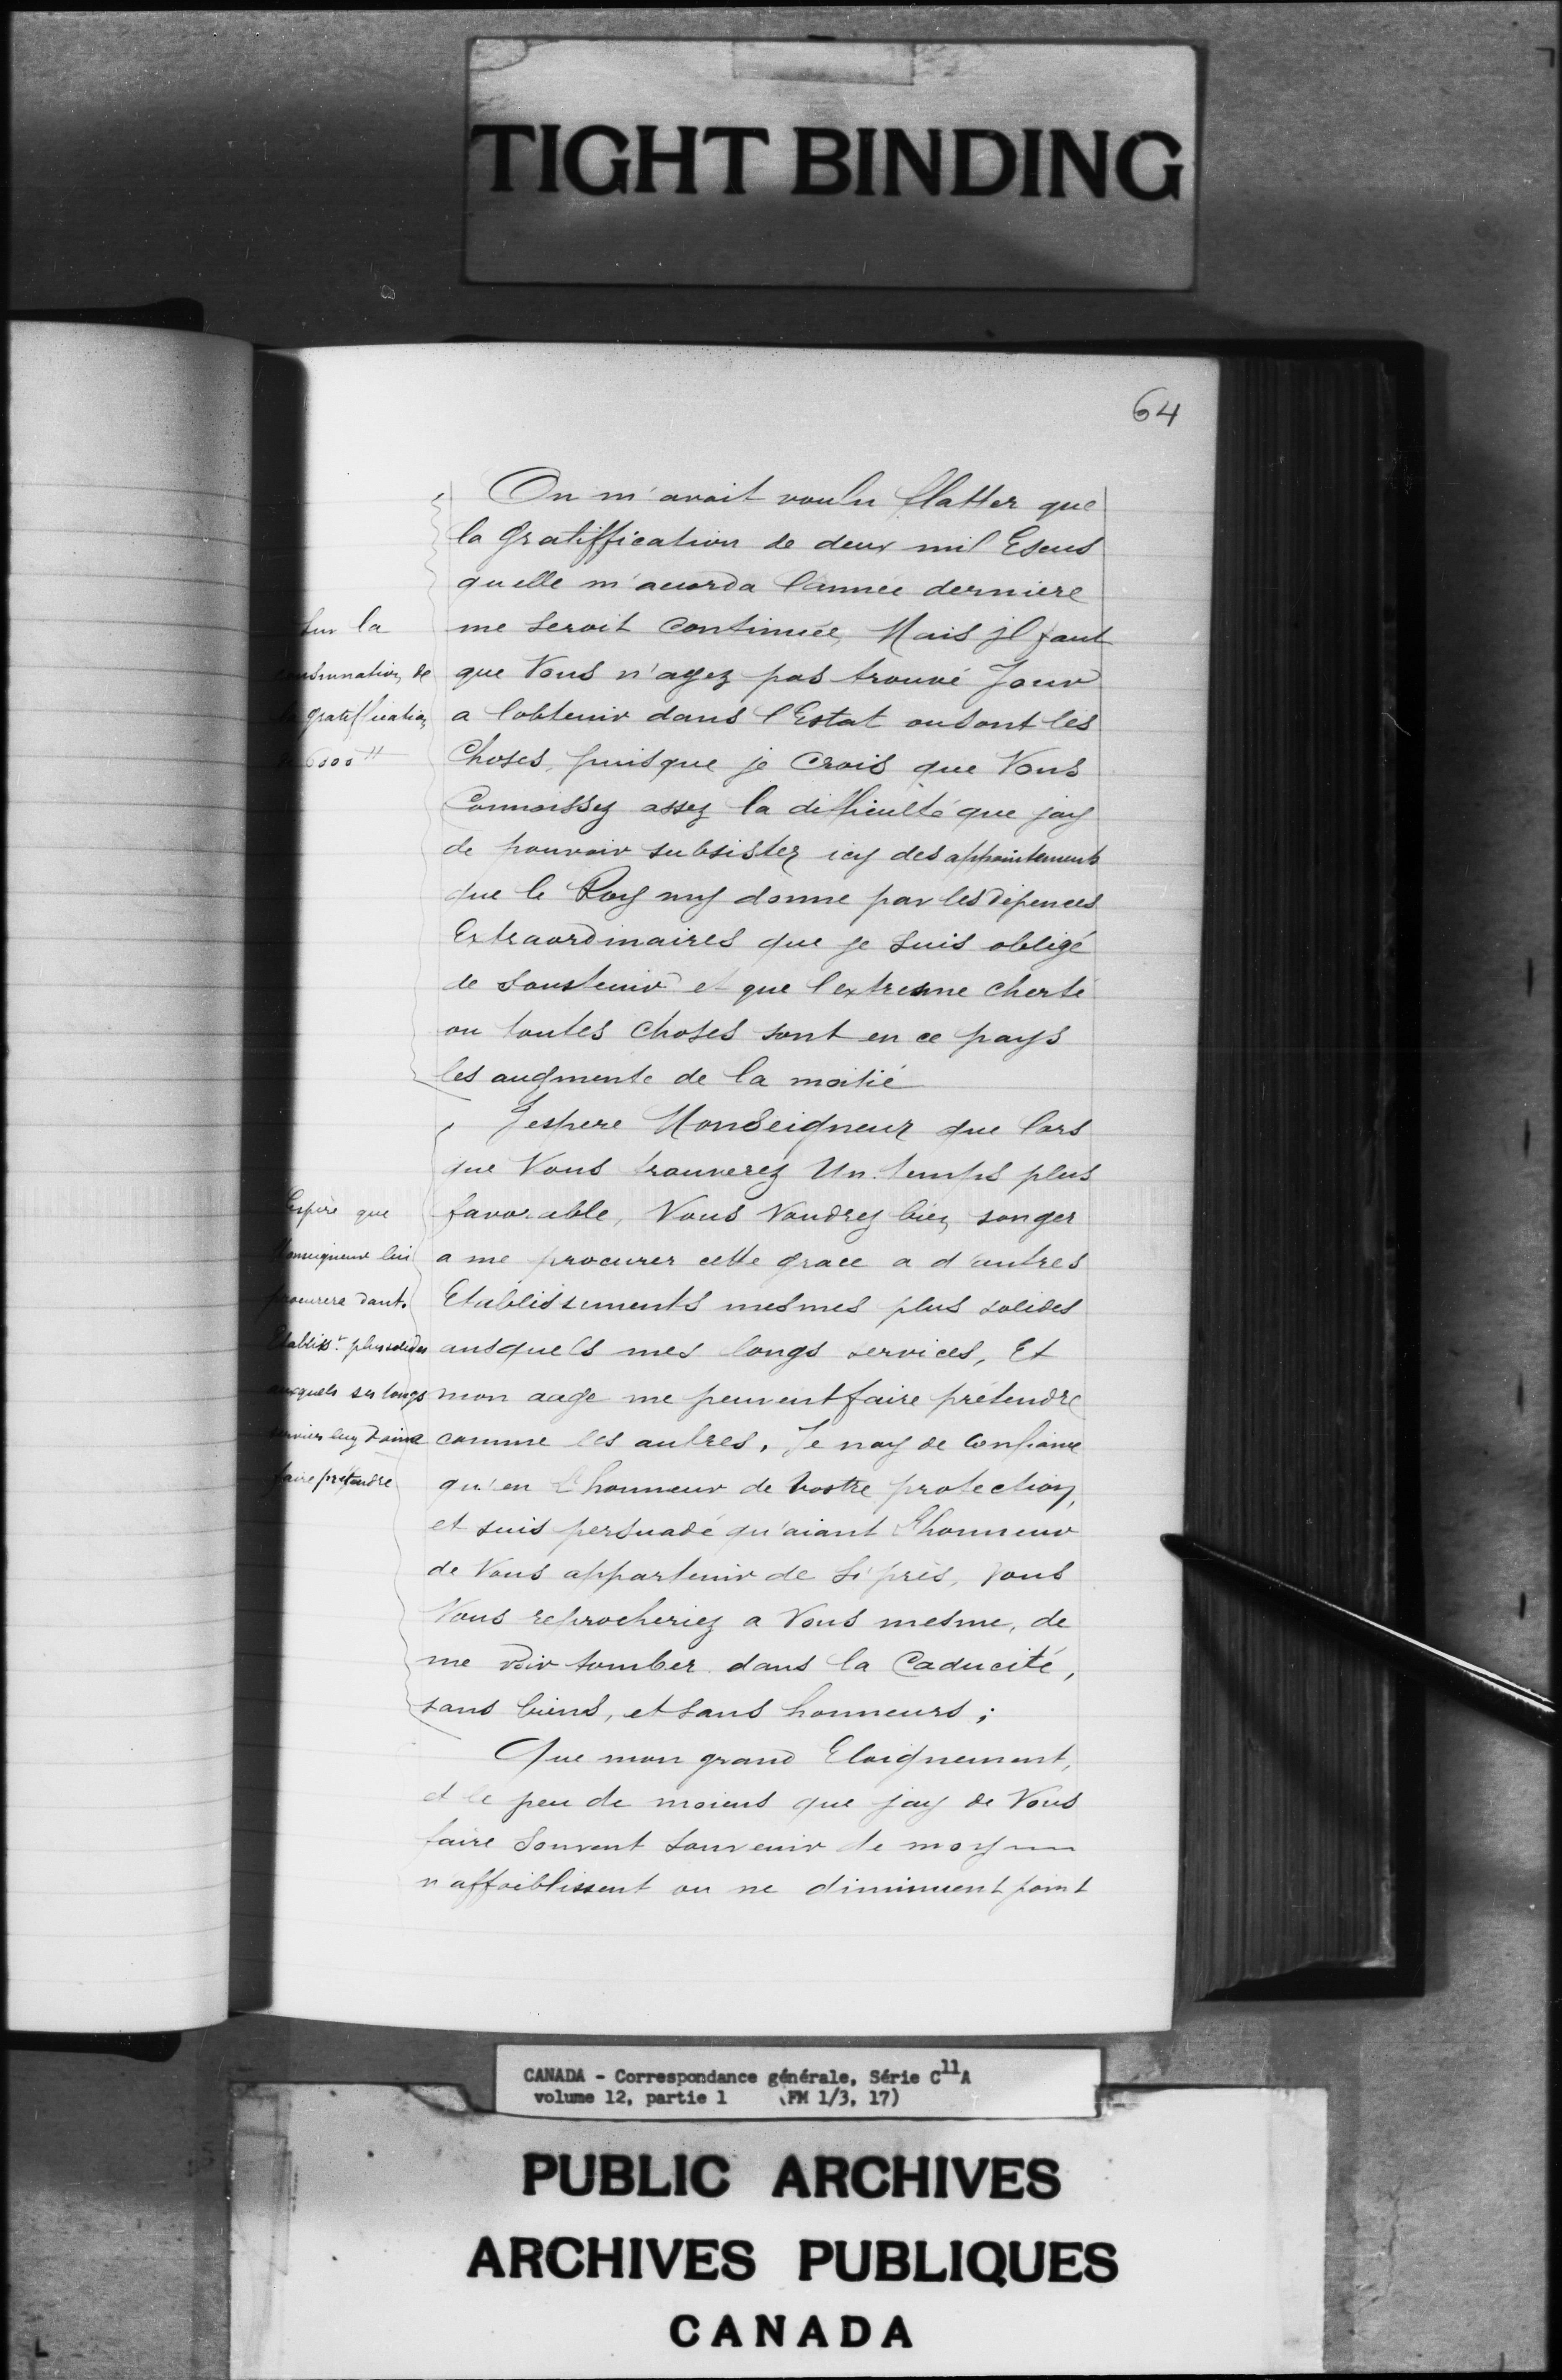 TIGHT BINDING
64
On m'avait voulu flatter que
la Gratiffication de deux mil Escus
quelle m'acorda lannee derniere
me seroit Continuée, Mais jl faut
que Vous n'ayez pas trouvé Jour
a lobtenir dans l'Estat ou sont les
Choses, puisque je Crois que Vous
Connoissez assez la difficulté que jay
de pouvoir subsister icy des appointements
que le Roy my donne par les dépences
Extraordinaires que je suis obligé
de Soustenir et que l'extresme cherté
ou toutes choses sont en ce pays
les augmente de la moitié
Sur la
de
la gratiffication
de 6000 ₶
Jespere Monseigneur que lors
que Vous trouverez Un temps plus
favorable, Vous Voudrez bien songer
a me procurer cette grace a d'autres
Etablissements mesmes plus solides
ausquels mes longs services, Et
mon aage me peuvent faire prétendre
comme les autres. Je nay de Confiance
qu'en l'honneur de Vostre protection,
et suis persuadé qu'aiant l'honneur
de Vous appartenir de si près, Vous
Vous reprocheriez a Vous mesme, de
me voir tomber dans la Caducité,
sans biens, et sans honneurs ;
Espère que
Monseigneur lui
procurera d'aut.
Etabliss.t plus solides
auxquels ses longs
services luy
faire prétendre
Que mon grand Eloignement,
et le peu de moiens que jay de Vous
faire Souvent Souvenir de moy
n'affoiblissent ou ne diminuent point
CANADA - Correspondance générale, Série C11A
volume 12, partie 1 (FM 1/3, 17)
PUBLIC ARCHIVES
ARCHIVES PUBLIQUES
CANADA